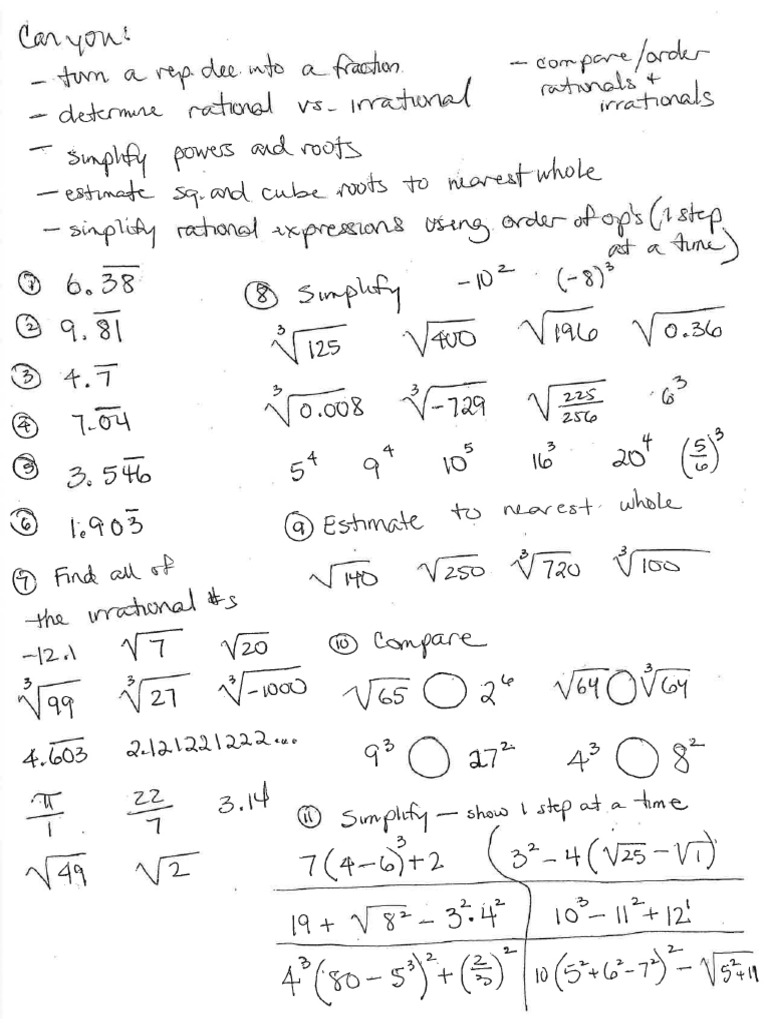 Can you:
- turn a rep. dec. into a fraction.
- compare/order rationals + irrationals
- determine rational vs. irrational
- simplify powers and roots
- estimate sq. and cube roots to nearest whole
- simplify rational expressions using order of op's (1 step at a time)
① 6.3̅8̅
② 9.8̅1̅
③ 4.7̅
④ 7.0̅4̅
⑤ 3.54̅6̅
⑥ 1.903̅
⑦ Find all of
the irrational #s
-12.1 √7 √20
∛99 ∛27 ∛-1000
4.6̅0̅3̅ 2.121221222...
π/1 22/7 3.14
√49 √2
⑧ Simplify -10² (-8)³
∛125 √400 √196 √0.36
∛0.008 ∛-729 √(225/256) 6³
5⁴ 9⁴ 10⁵ 16³ 20⁴ (5/6)³
⑨ Estimate to nearest whole
√140 √250 ∛720 ∛100
⑩ Compare
√65 ○ 2⁶ √64 ○ ∛64
9³ ○ 27² 4³ ○ 8²
⑪ Simplify - show 1 step at a time
7(4-6)³+2 (3²-4(√25-√1)
19+√8²-3²·4² 10³-11²+12¹
4³(80-5³)²+(2/3)² 10(5²+6²-7²)²-√(5²+11